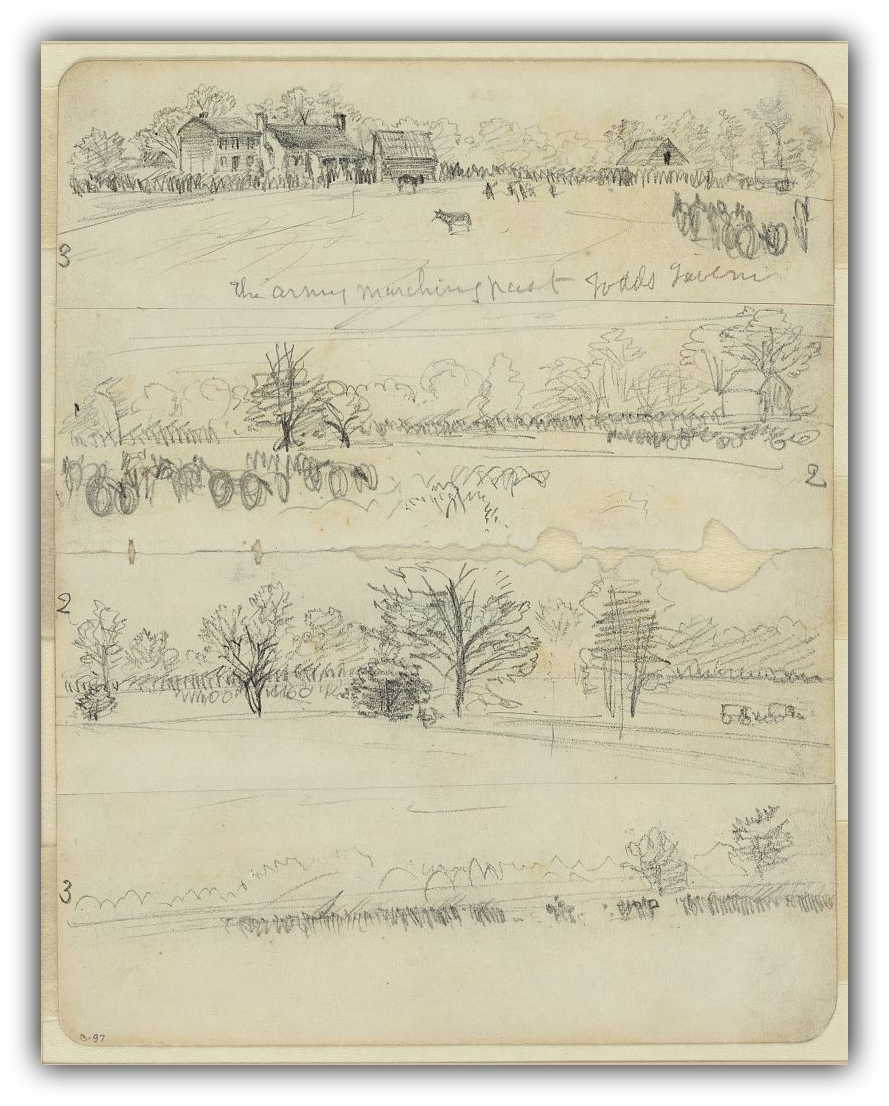 3
the army marching past Todds Tavern
2
2
3
B-97